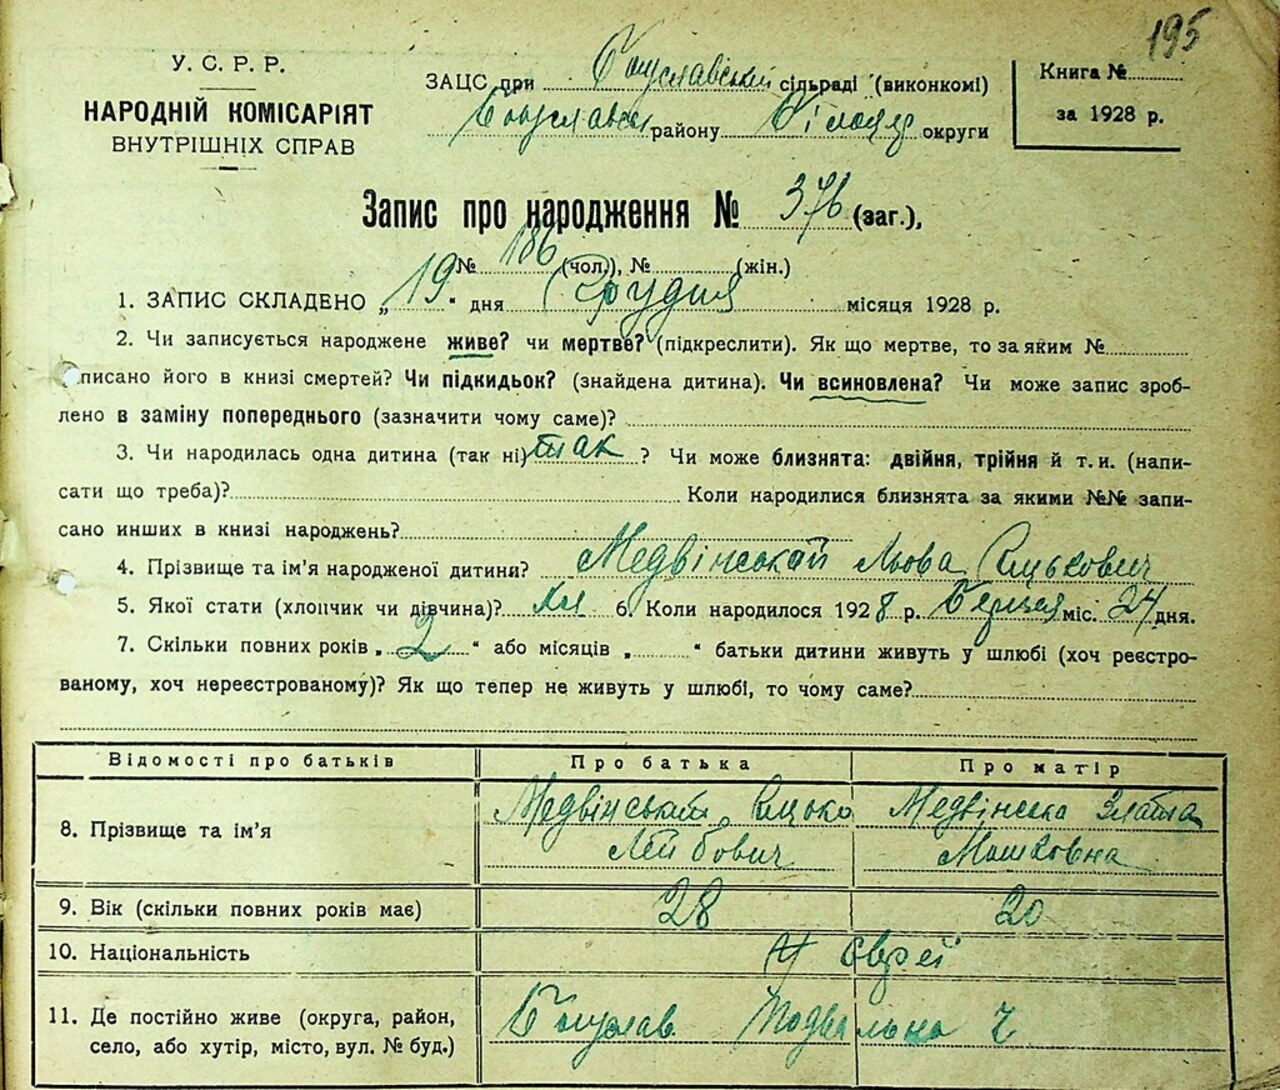 195
У. С. Р. Р.
НАРОДНІЙ КОМІСАРІЯТ
ВНУТРІШНІХ СПРАВ
ЗАЦС при Богуславській сільраді (виконкомі)
Богуславськ району Білоцер округи
Книга №
за 1928 р.
Запис про народження № 376 (заг.),
№ 186 (чол.), № (жін.)
1. ЗАПИС СКЛАДЕНО „ 19 " дня Грудня місяця 1928 р.
2. Чи записується народжене живе? чи мертве? (підкреслити). Як що мертве, то за яким №
аписано його в книзі смертей? Чи підкидьок? (знайдена дитина). Чи всиновлена? Чи може запис зроб-
лено в заміну попереднього (зазначити чому саме)?
3. Чи народилась одна дитина (так ні) так ? Чи може близнята: двійня, трійня й т. и. (напи-
сати що треба)? Коли народилися близнята за якими №№ запи-
сано инших в книзі народжень?
4. Прізвище та ім'я народженої дитини? Медвінський Льова Ицькович
5. Якої стати (хлопчик чи дівчина)? хл 6. Коли народилося 1928 р. Березня міс. 24 дня.
7. Скільки повних років „ 2 " або місяців „ " батьки дитини живуть у шлюбі (хоч реєстро-
ваному, хоч нереєстрованому)? Як що тепер не живуть у шлюбі, то чому саме?
Відомості про батьків Про батька Про матір
8. Прізвище та ім'я Медвінський Ицько Медвінська Злата
Лейбович Мошковна
9. Вік (скільки повних років має) 28 20
10. Національність євреї
11. Де постійно живе (округа, район, Богуслав Подвальна 7
село, або хутір, місто, вул. № буд.)